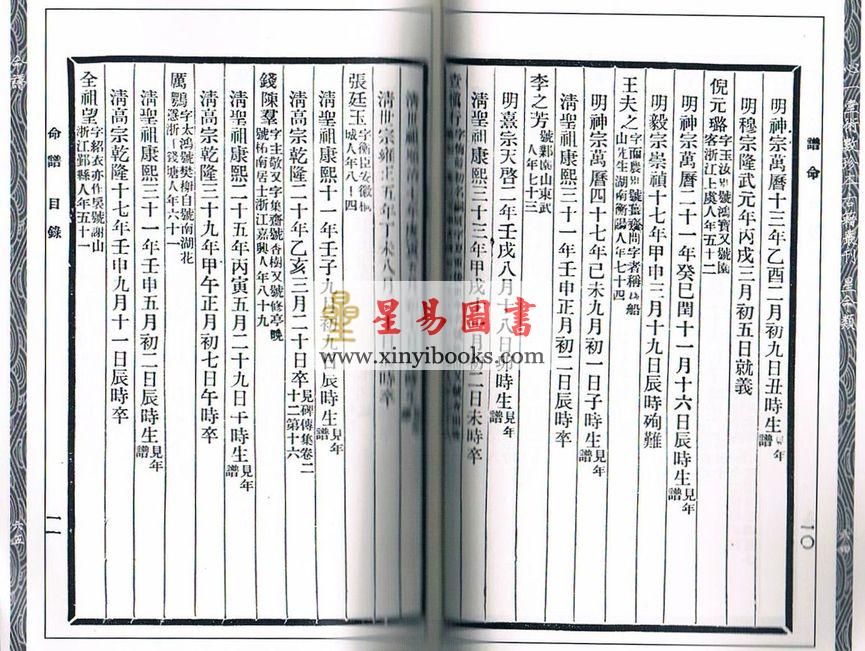 譜命
一〇
明神宗萬曆十三年乙酉二月初九日丑時生見年譜
明穆宗隆武元年丙戌三月初五日就義
倪元璐字玉汝別號鴻寶又號園客浙江上虞人年五十二
明神宗萬曆二十一年癸巳閏十一月十六日辰時生見年譜
明毅宗崇禎十七年甲申三月十九日辰時殉難
王夫之字而農別號薑齋問字者稱船山先生湖南衡陽人年七十四
明神宗萬曆四十七年己未九月初一日子時生見年譜
清聖祖康熙三十一年壬申正月初二日辰時卒
李之芳號鄴園山東武人年七十三
明熹宗天啓二年壬戌八月十八日卯時生見年譜
清聖祖康熙三十三年甲戌月初二日未時卒
查慎行
清世祖順治七年庚寅
清世宗雍正五年丁未八月時卒
張廷玉字衡臣安徽桐城人年八十四
清聖祖康熙十一年壬子九月初九日辰時生見年譜
清高宗乾隆二十年乙亥三月二十日卒見碑傳集卷二十二第十六
錢陳羣字主敬又字集齋號香樹又號修亭晚號柘南居士浙江嘉興人年八十九
清聖祖康熙二十五年丙寅五月二十九日午時生見年譜
清高宗乾隆三十九年甲午正月初七日午時卒
厲鶚字太鴻號樊榭自號南湖花隱浙江錢塘人年六十一
清聖祖康熙三十一年壬申五月初二日辰時生見年譜
清高宗乾隆十七年壬申九月十一日辰時卒
全祖望字紹衣亦作號謝山浙江鄞縣人年五十一
命譜 目錄
一一
六五
星易圖書
www.xinyibooks.com